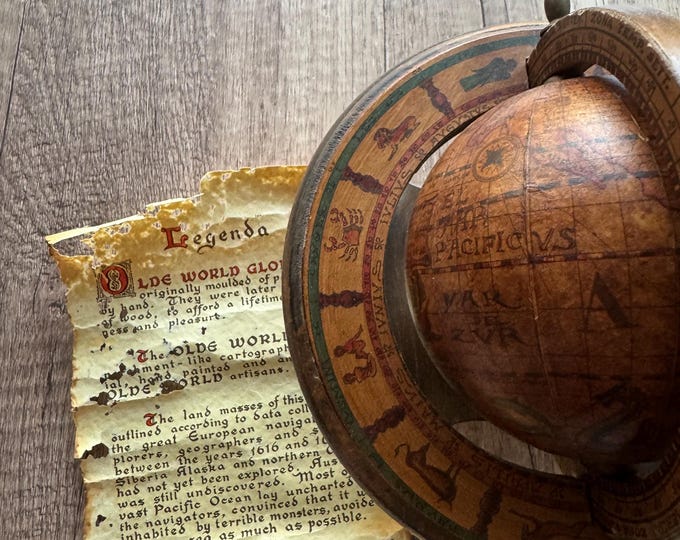 Legenda
OLDE WORLD GLO
originally moulded of p
by hand. They were later
of wood, to afford a lifetime
gess and pleasure.
The OLDE WORL
ment-like cartograp
al, hand painted and an
OLDE WORLD artisans.
The land masses of this
outlined according to data coll
the great European naviga
plorers, geographers and s
between the years 1616 and
Siberia Alaska and northern C
had not yet been explored. Aus
was still undiscovered. Most g
vast Pacific Ocean lay uncharted
the navigators, convinced that it w
inhabited by terrible monsters, avoide
sea as much as possible.
ZONA TEMP
IULIUS
IUNIUS
MAIUS
EL
MAR
PACIFICVS
VAR
DEL
ZVR
A